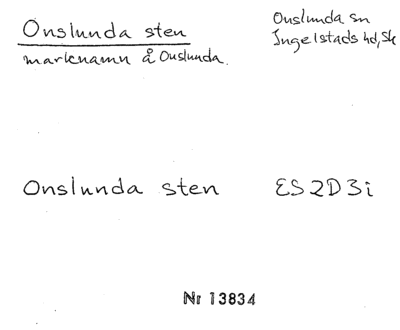 Onslunda sten
marknamn å Onslunda.
Onslunda sn
Ingelstads hd, Sk
Onslunda sten
ES2D3i
Nr 13834